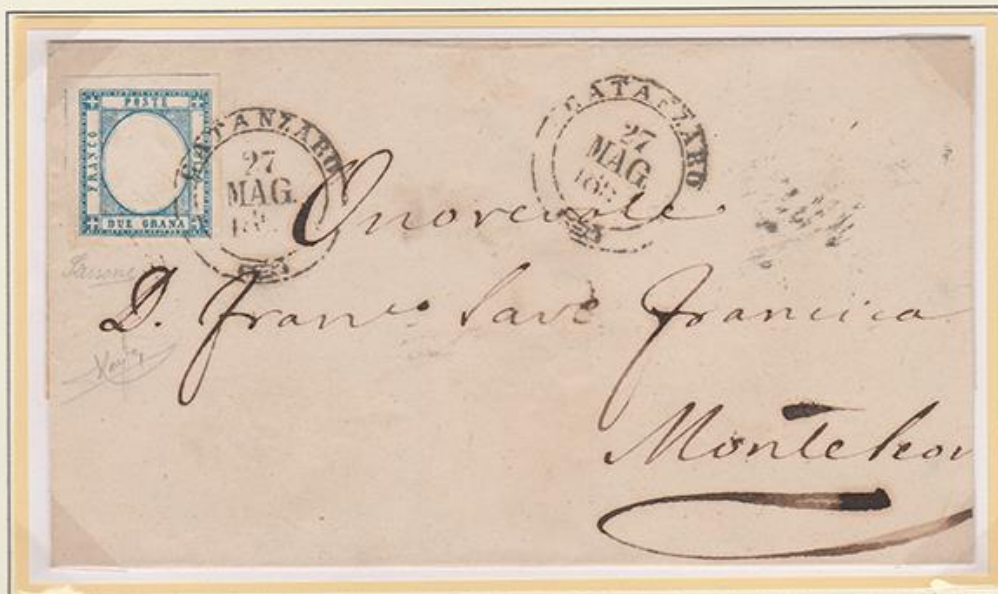 POSTE
FRANCO
DUE GRANA
CATANZARO
27
MAG.
CATANZARO
27
MAG.
Onorevole
D. Franco Save Francica
Monteleon